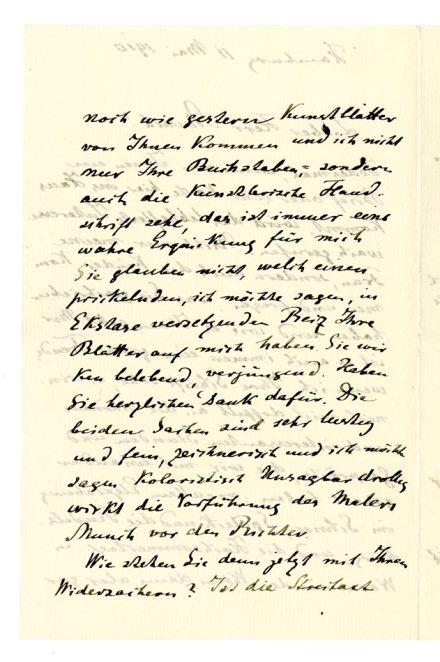 noch wie gestern Kunstblätter
von Ihnen kommen und ich nicht
nur Ihre Buchstaben, – sondern
auch die künstlerische Hand-
schrift sehe, das ist immer eine
wahre Erquickung für mich
Sie glauben nicht, welch einen
prickelnden, ich möchte sagen, in
Ekstase versetzenden Reiz Ihre
Blätter auf mich haben Sie wir
ken belebend, verjüngend. Haben
Sie herzlichen Dank dafür. Die
beiden Sachen sind sehr lustig
und fein, zeichnerisch und ich möchte
sagen koloristisch Unsagbar drollig
wirkt die Vorführung des Malers
Munch vor den Richter.
Wie stehen Sie denn jetzt mit Ihren
Widersachern? Ist die Streitaxt